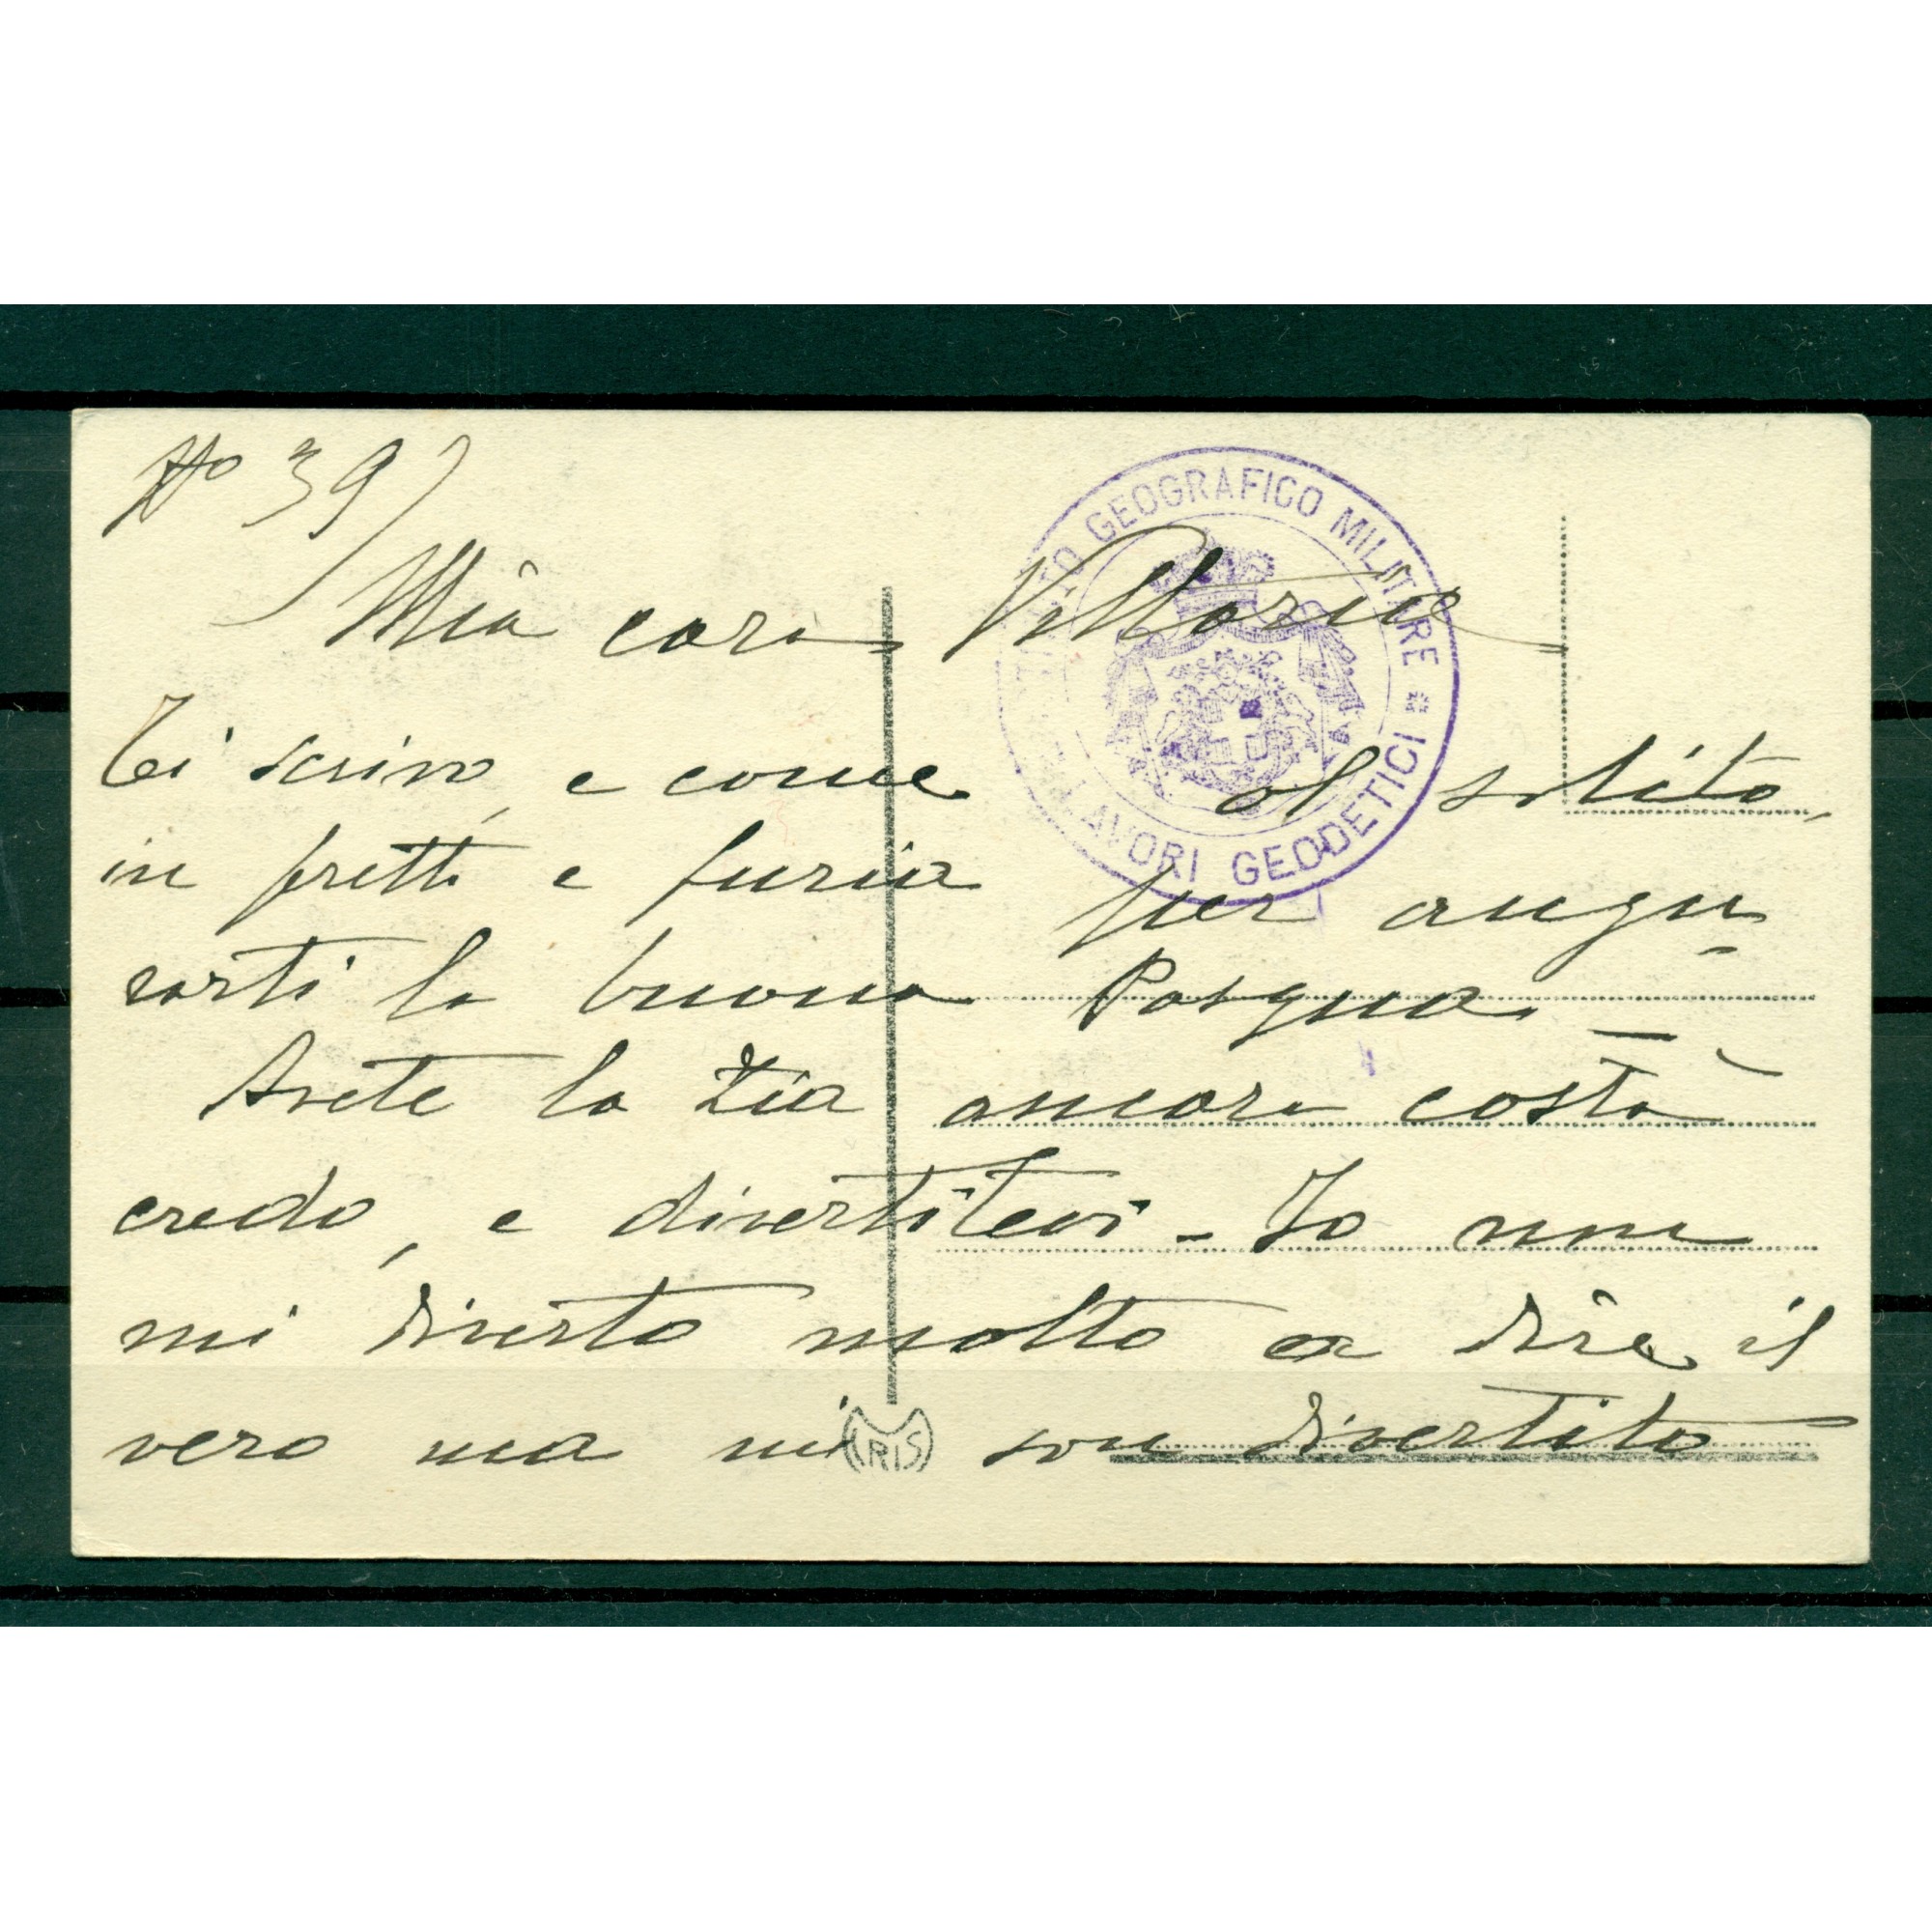 No 39)
Mia cara Vittoria
ISTITUTO GEOGRAFICO MILITARE * LAVORI GEODETICI
Ti scrivo, e come al solito,
in fretta e furia per augu
rarti la buona Pasqua. —
Avete la Zia ancora costà
credo, e divertitevi - Io non
mi diverto molto a dire il
vero ma mi son divertito
IRIS